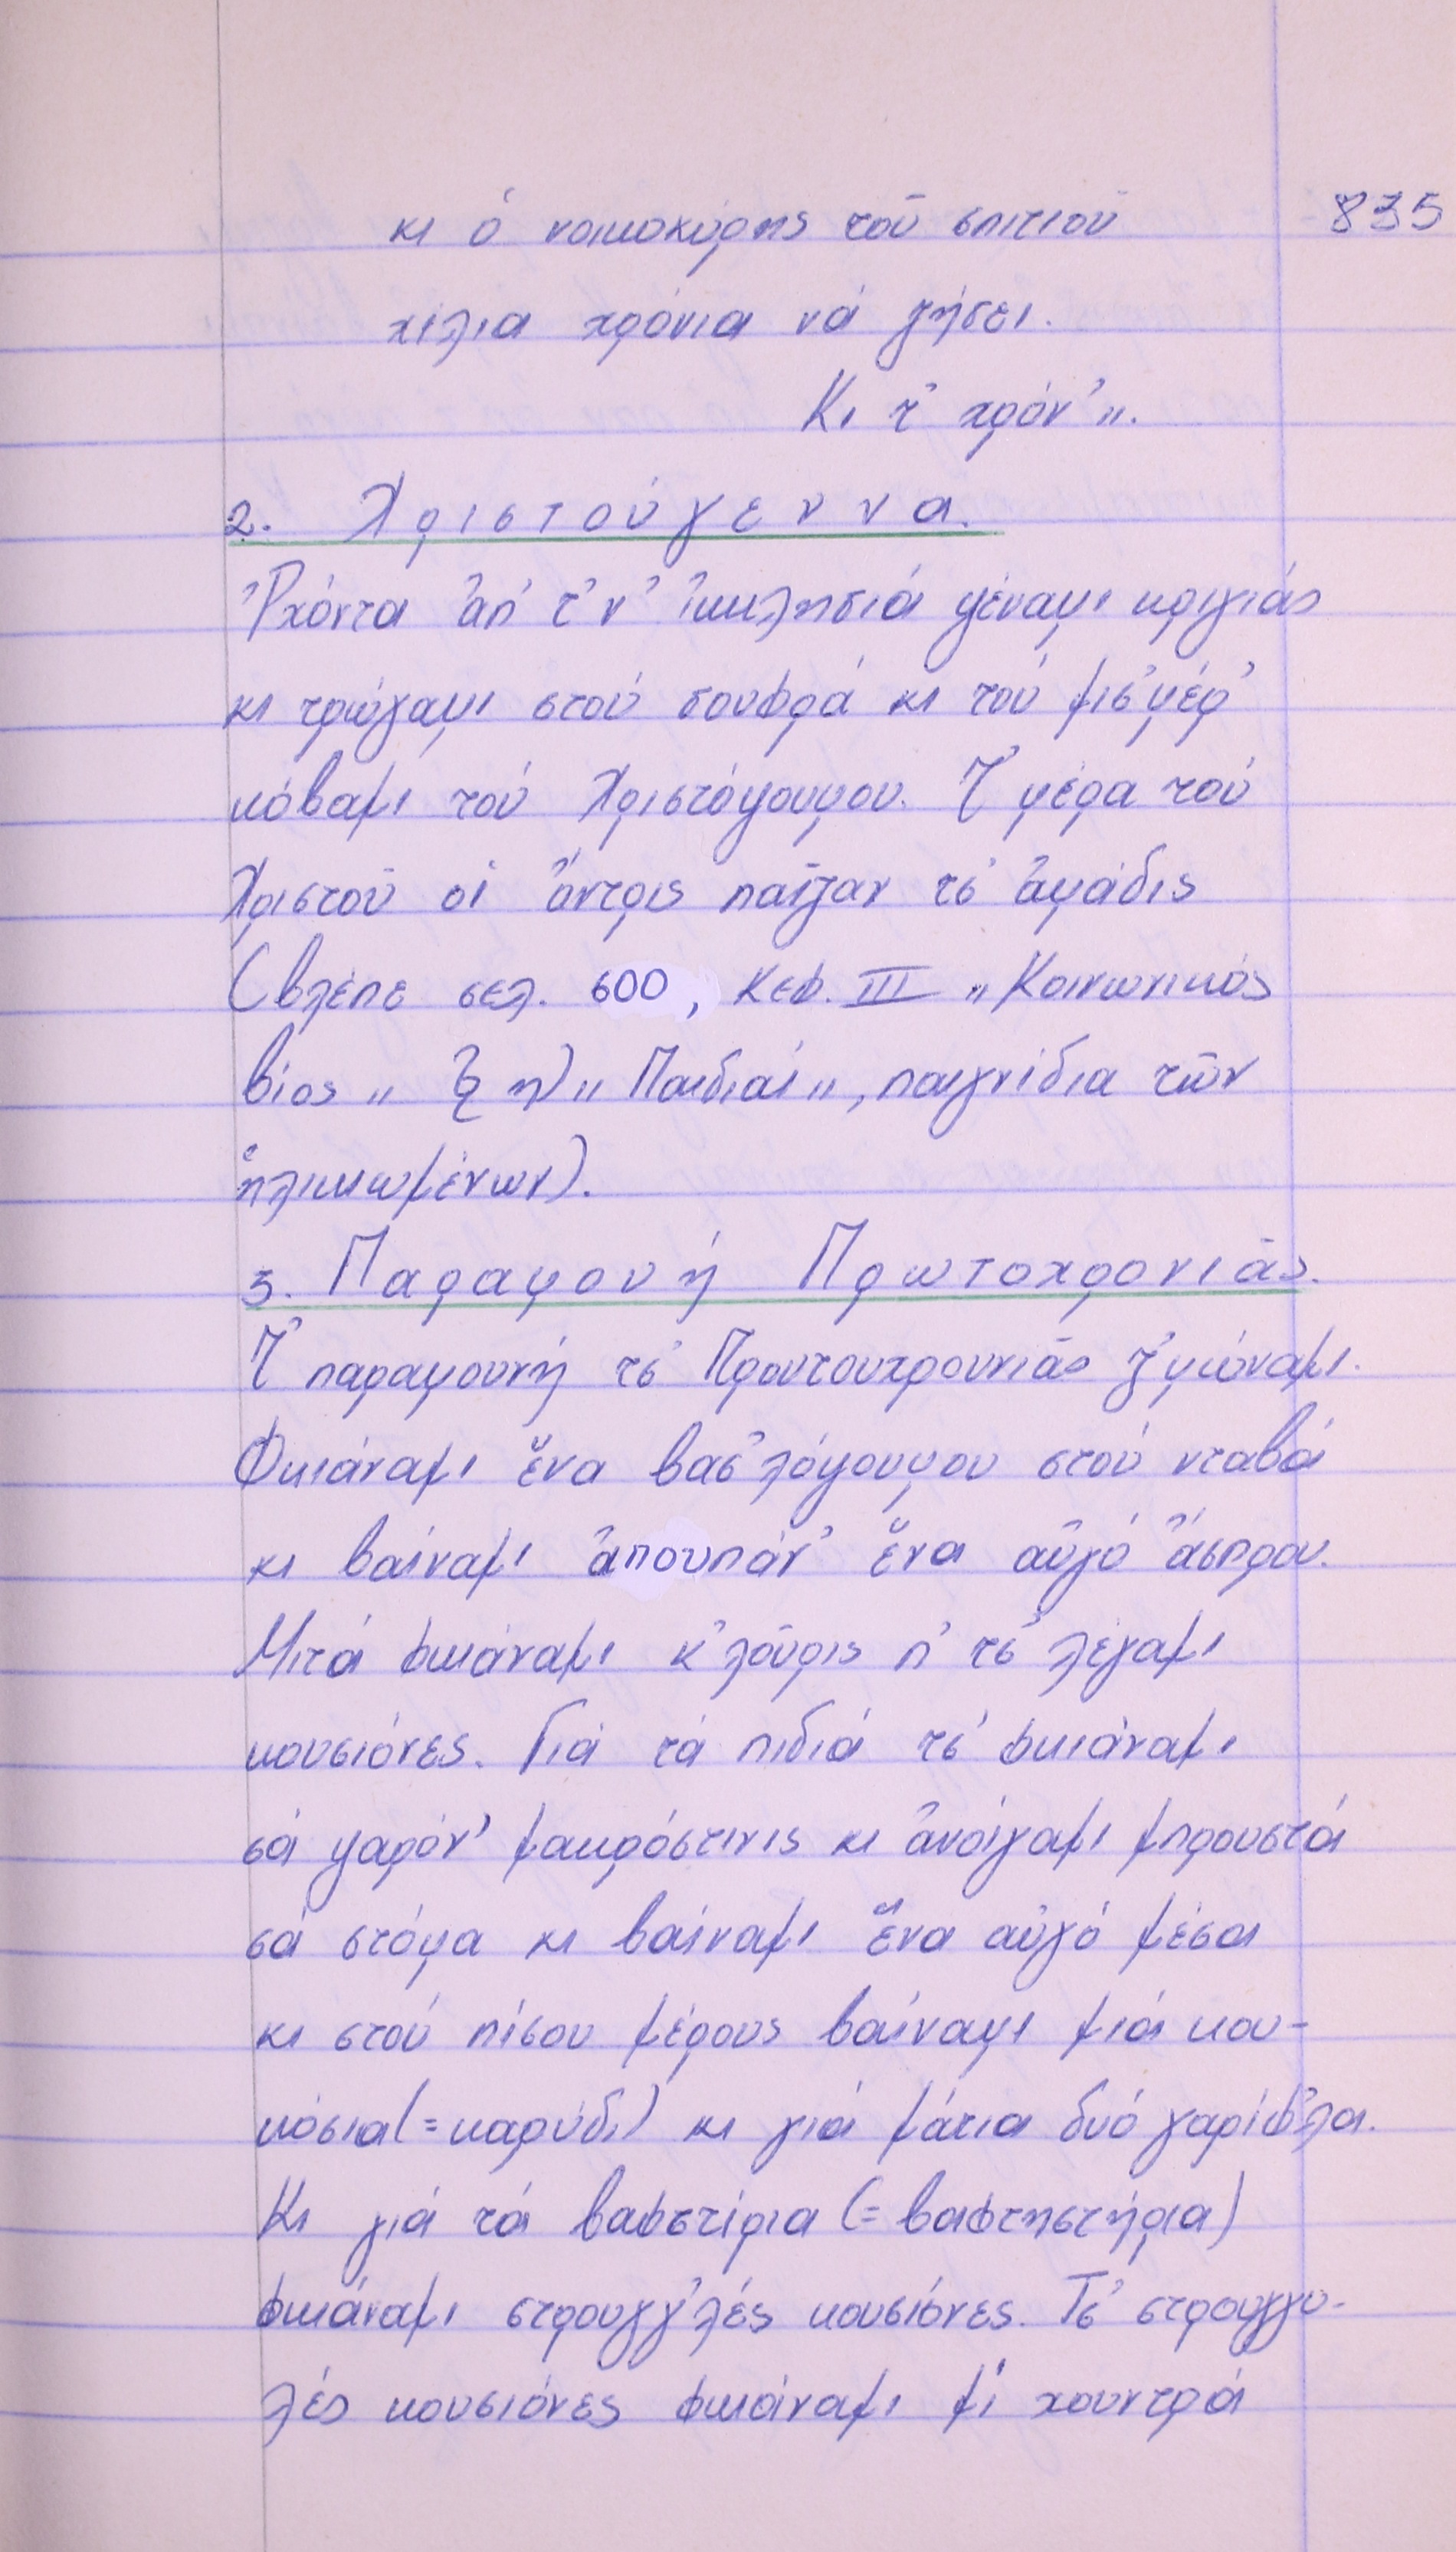 835
κι ὁ νοικοκύρης τοῦ σπιτιοῦ
χίλια χρόνια νά ζήσει.
Κι τ' χρόν'".
2. Χριστούγεννα.
Ἐρχόντα ἀπ' τ'ν' ἰκκλησιά γέναμι κριγιάς
κι τρώγαμι στού σουφρά κι τού μισ'μέρ'
κόβαμι τού Χριστόψουμου. Τ' μέρα τού
Χριστοῦ οἱ ἄντρις παῖζαν τσ' ἀμάδις
(βλέπε σελ. 600, κεφ. III "Κοινωνικός
βίος" ξ η) "Παιδιαί", παιγνίδια τῶν
ἡλικιωμένων).
3. Παραμονή Πρωτοχρονιᾶς.
Τ' παραμουνή τσ' Προυτουχρουνιᾶς ζ'μώναμι.
Φκιάναμι ἕνα βασ'λόψουμου στού νταβά
κι βαίναμι ἀπουπάν' ἕνα αὐγό ἄσπρου.
Μιτά φκιάναμι κ'λοῦρις π' τσ' λέγαμι
κουσιόνες. Γιά τά πιδιά τσ' φκιάναμι
σά ψαρόν' μακρόστινις κι ἀνοίγαμι μπρουστά
σά στόμα κι βαίναμι ἕνα αὐγό μέσα
κι στού πίσου μέρους βαίναμι μιά κου-
κόσια (=καρύδι) κι γιά μάτια δυό γαρίφ'λα.
Κι γιά τά βαφστίρια (= βαφτηστήρια)
φκιάναμι στρουγγ'λές κουσιόνες. Τσ' στρουγγυ-
λές κουσιόνες φκιάναμι μί χουντρά